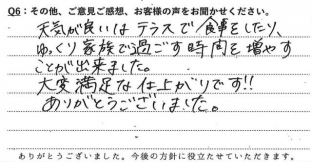 Q6：その他、ご意見ご感想、お客様の声をお聞かせください。
天気が良いはテラスで食事をしたり、
ゆっくり家族で過ごす時間を増やす
ことが出来ました。
大変満足な仕上がりです!!
ありがとうございました。
ありがとうございました。今後の方針に役立たせていただきます。